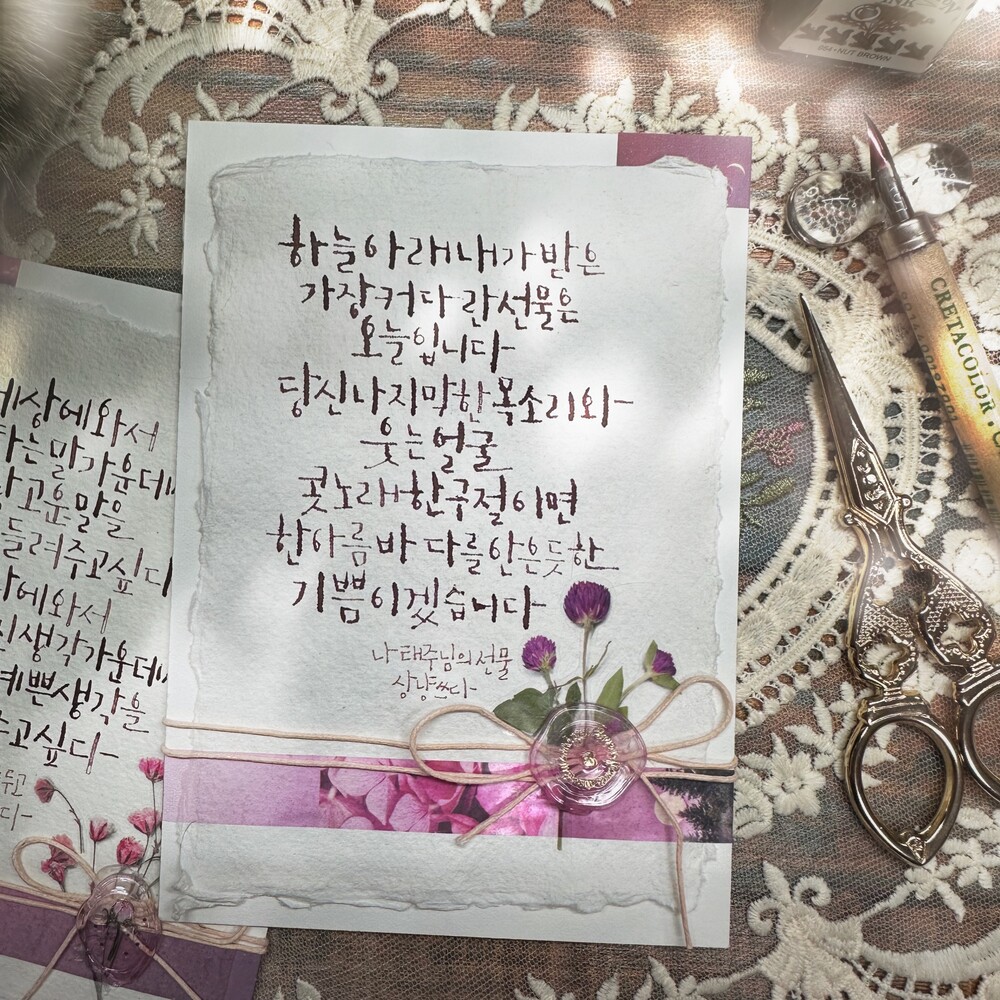 하늘 아래 내가 받은
가장 커다란 선물은
오늘입니다
당신 나지막한 목소리와
웃는 얼굴
콧노래 한 구절이면
한 아름 바다를 안은 듯한
기쁨이겠습니다
나태주님의 선물
상냥쓰다
세상에 와서
하는 말 가운데
고운 말을
들려주고 싶다
세상에 와서
생각 가운데
예쁜 생각을
주고 싶다
CRETACOLOR
054 • NUT BROWN